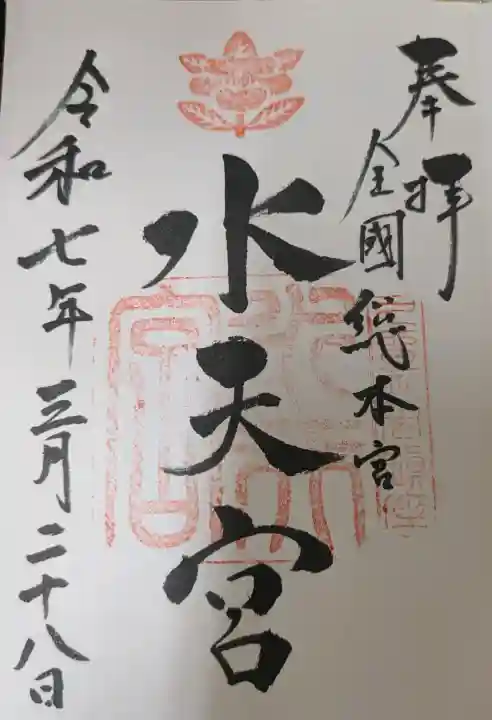 奉拝
全国総本宮
水天宮
令和七年三月二十八日